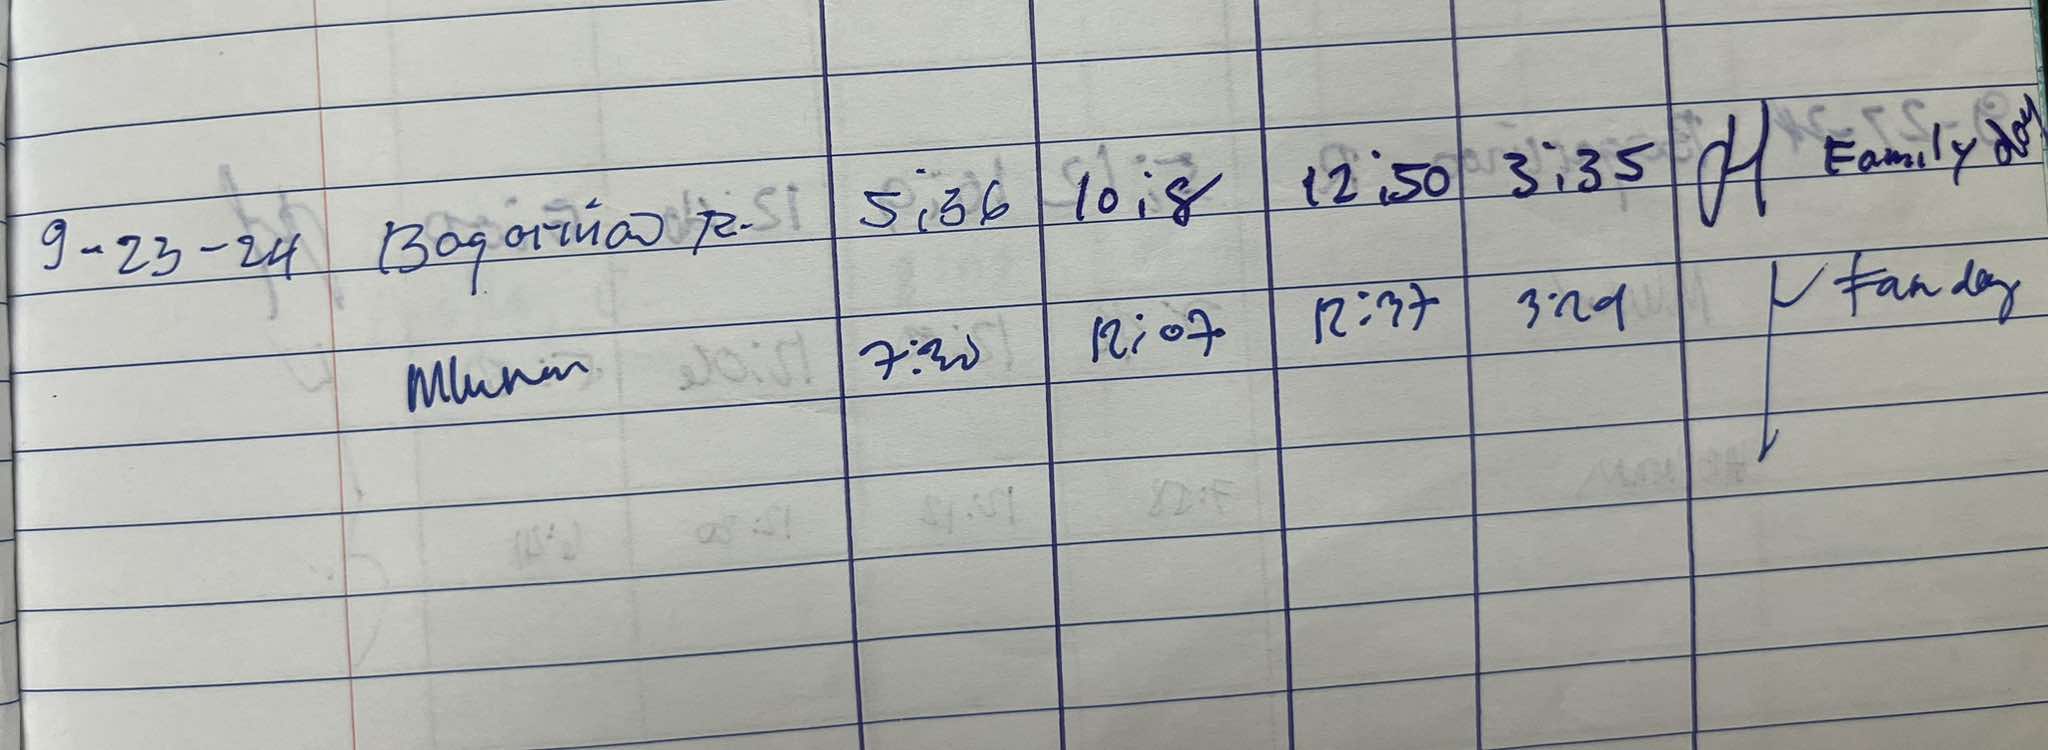 9-23-24 Bagariñao R. 5:36 10:8 12:50 3:35 Family day
7:30 12:07 12:37 3:29 Fam day